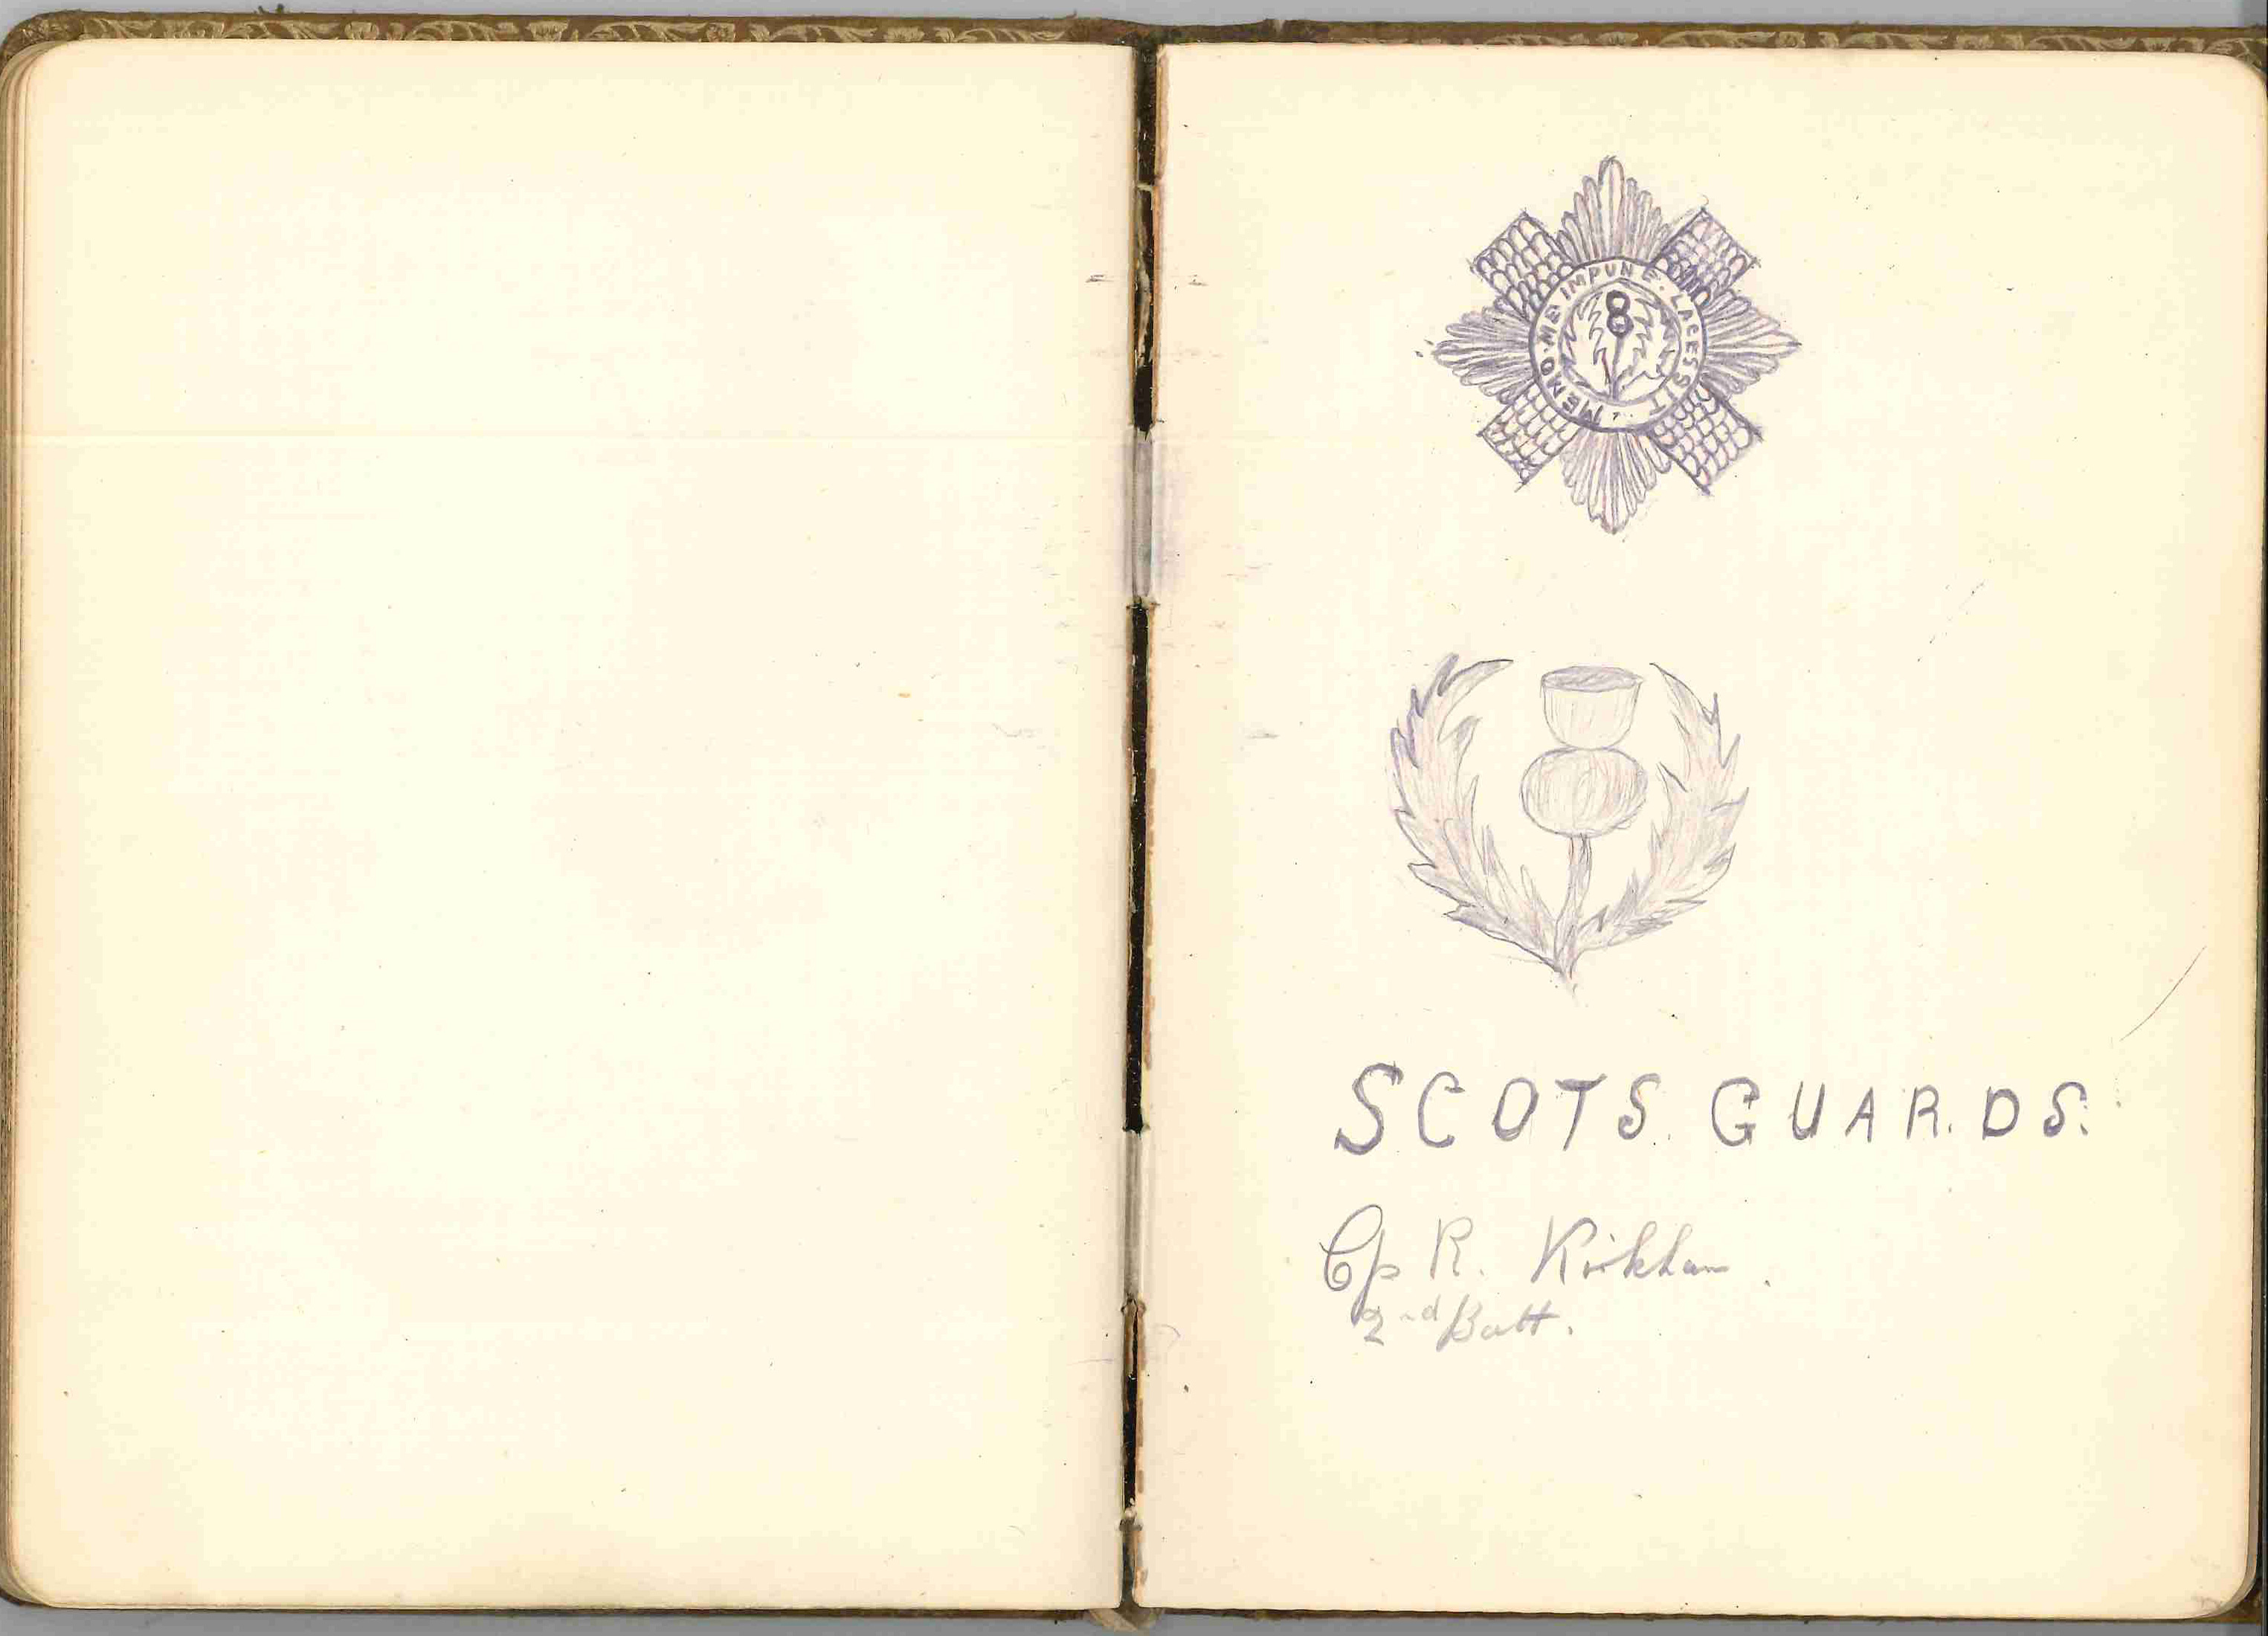 MEMO · ME IMPUNE · LACESSIT
SCOTS. GUAR.DS.
Cp R. Kirkham.
2nd Batt.